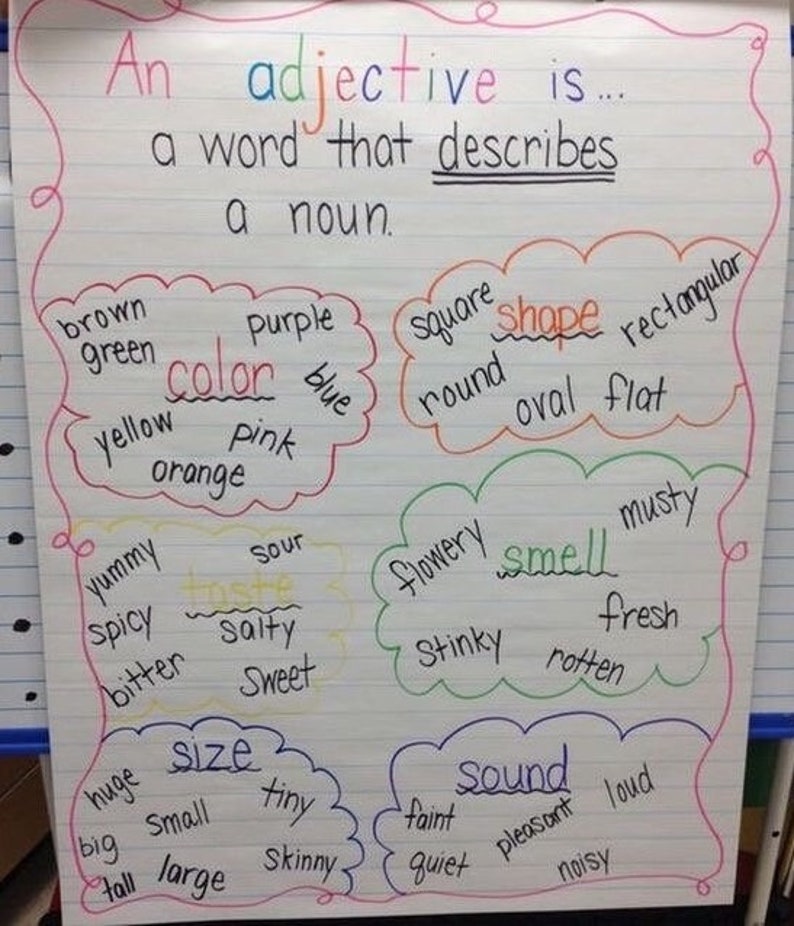 An adjective is...
a word that describes
a noun.
brown
purple
green
color
blue
yellow
pink
orange
square
shape
rectangular
round
oval
flat
yummy
sour
taste
spicy
salty
bitter
sweet
flowery
smell
musty
fresh
stinky
rotten
size
huge
tiny
small
big
skinny
tall
large
sound
faint
pleasant
loud
quiet
noisy